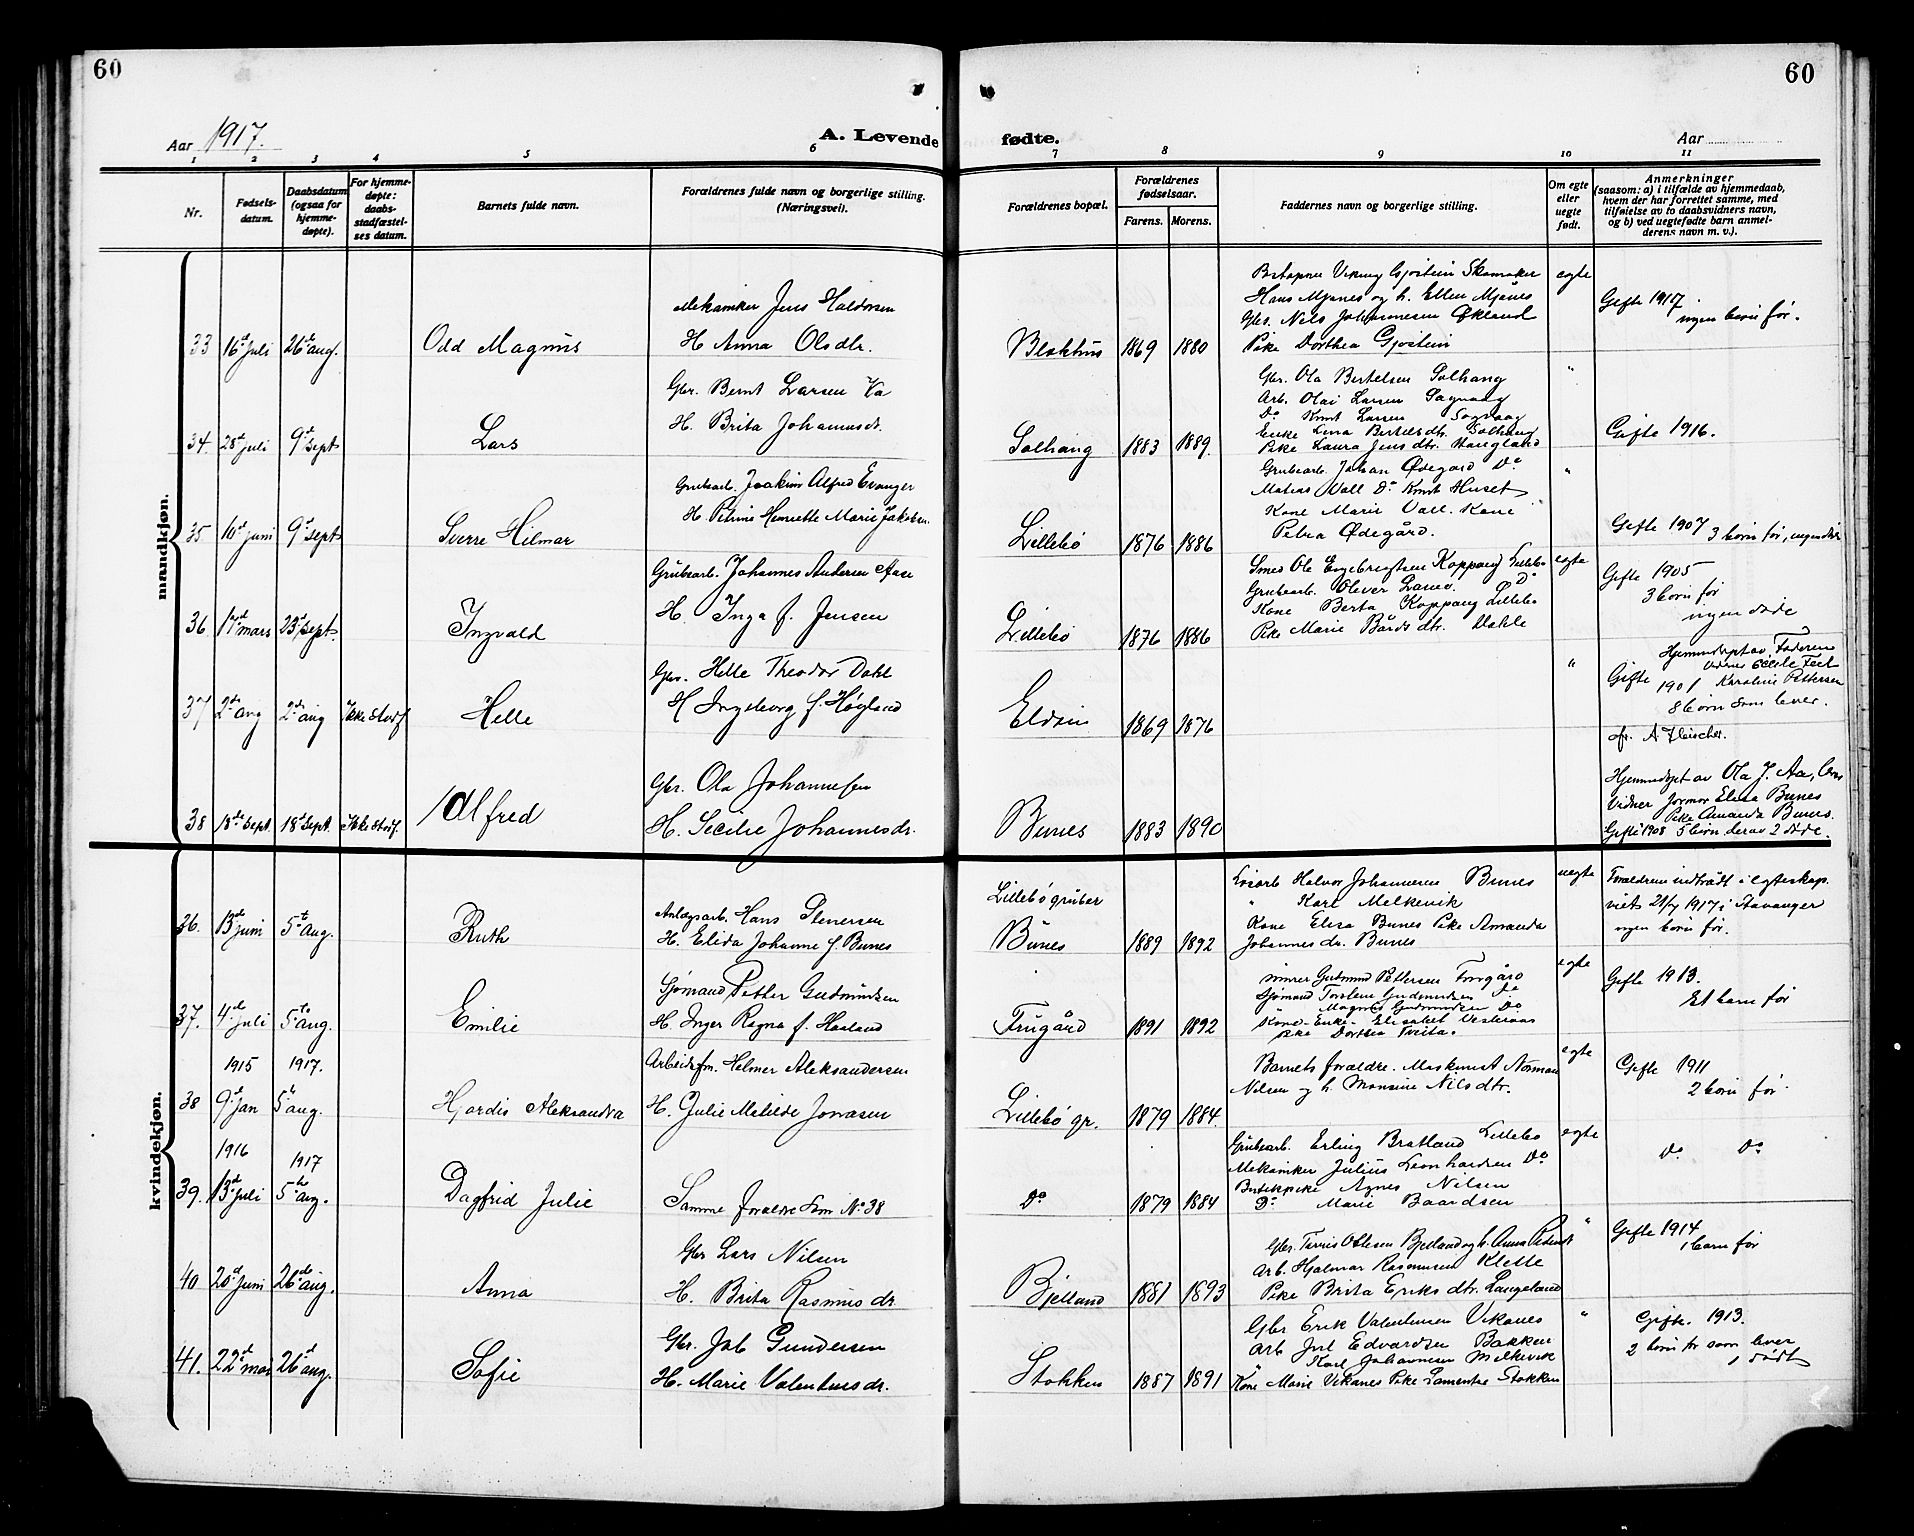 60
60
Aar 1917.
A. Levende fødte.
Aar
1 2 3 4 5 6 7 8 9 10 11
Nr.
Fødsels-
datum.
Daabsdatum
(ogsaa for
hjemme-
døpte).
For hjemme-
døpte:
daabs-
stadfæstel-
ses datum.
Barnets fulde navn.
Forældrenes fulde navn og borgerlige stilling.
(Næringsvei).
Forældrenes bopæl.
Forældrenes
fødselsaar.
Farens. Morens.
Faddernes navn og borgerlige stilling.
Om egte
eller
uegte
født.
Anmerkninger
(saasom: a) i tilfælde av hjemmedaab,
hvem der har forrettet samme, med
tilføielse av to daabsvidners navn,
og b) ved uegtefødte barn anmel-
derens navn m. v.).
mandkjøn.
33 16de juli 26de aug. Odd Magnus
Mekaniker Jens Haldorsen
H Anna Olsdtr.
Blokhus 1869 1880
Gjøstein Skomaker
Hans Mjånes og h. Ellen Mjånes
Gbr. Nils Johannesen Økland
Pike Dorthea Gjøstein
egte
Gifte 1917
ingen børn før.
34. 28de juli 9de sept Lars
Gbr. Bernt Larsen Va
H. Brita Johannesdr.
Solhaug 1883 1889.
Gbr. Ola Bertelsen Solhaug
Arb. Olai Larsen Sagvaag
Do Knut Larsen Sagvaag
Enke Lina Bertelsdtr. Solhaug
Pike Laura Jensdtr. Haugland
"
Gifte 1916.
35 10de juni 9de sept Sverre Hilmar
Grubearb. Joakim Alfred Evanger
H. Petrine Henriette Marie Jakobsen.
Lillebø 1876 1886
Grubearb. Johan Ødegård Do
Matias Vall Do Knut Huset
Kone Marie Vall. Kone
Petra Ødegård.
"
Gifte 1907 3 børn før, ingen døde
36. 17de mars 23de sept. Ingvald
Grubearb. Johannes Andersen Aase
H. Inga f. Jensen
Lillebø 1876 1886
Smed Ole Engebregtsen Koppang Lillebø
Grubearb. Oliver Do
Kone Berta Koppang Lillebø
Pike Marie Bårdsdtr. Dahle
egte
Gifte 1905
3 børn før
ingen døde
37 2de aug 2de aug Ikke stadf Helle
Gbr. Helle Theodor Dahl
H Ingeborg f. Høyland
Eldøin 1869 1876
"
Hjemmedøpt av Faderen
Gifte 1901 Karoline Pettersen
8 børn som lever.
A Fleischer.
38 18de sept. 18de sept. Ikke stadf. Alfred
Gbr. Ola Johannesen
H. Secilie Johannesdr.
Bunes 1883 1890
Hjemmedøpt av Ola J. Aa,
Vidner Jormor Elisa Bunes
Pike Amanda Bunes.
Gifte 1908 5 børn derav 2 døde.
kvindekjøn.
36. 13de juni 5te aug. Ruth
Anlægsarb. Hans Stenersen
H. Elida Johanne f. Bunes
Lillebø gruber
Bunes 1889 1892
Løsarb Halvor Johannesen Bunes
" Karl Melkevik
Kone Elisa Bunes Pike Amanda
Johannesdr. Bunes
uegte
Forældrene indtrådt i egteskap.
viet 21/7 1917 i Stavanger
ingen børn før.
37. 4de juli 5te aug. Emilie
Sjømand Petter Gudmundsen
H. Inger Ragna f. Haaland
Frugård 1891 1892
Gudmund Pettersen Frugård
Sjømand Torstein Gudmundsen Do
Magnus Gudmundsen Do
Kone-Enke-Elisabet Vestvaas
Pike Dorthea Tveita.
egte
Gifte 1913.
Et barn før
1915 1917.
38 9de Jan 5te aug. Hjørdis Aleksandra
Arbeidsfm. Helmer Aleksandersen
H. Julie Matilde Jonasen
Lillebø gr. 1879 1884.
Barnets forældre. Maskinist Norman
Nilsen og h. Monsine Nilsdtr.
egte
Gifte 1911
2 børn før.
1916 1917
39. 13de juli 5te aug. Dagfrid Julie
Samme forældre som No 38
Do 1879 1884
Grubearb. Erling Bratland Lillebø
Mekaniker Julius Leonhardsen Do
Butikpike Agnes Nilsen
Do Marie Baardsen
egte
Do Do
40 20de juni 26de aug. Anna
Gbr Lars Nilsen
H. Brita Rasmusdr.
Bjelland 1881 1893
Gbr. Tarris Ottesen Bjelland og h. Anna
Arb. Hjalmar Rasmusen Klette
Pike Brita Eriksdtr. Langeland
"
Gifte 1914
1 barn før
41. 22de mai 26de aug. Sofie
Gbr. Job Gundersen
H. Marie Valentinsdr.
Stokken 1887 1891
Gbr Erik Valentinsen Vikanes
Arb Joh Edvardsen Bakken
Karl Johannesen Melkevik
Kone Marie Vikanes Pike Lamentse Stokken
"
Gifte. 1913.
2 børn før som lever
1 dødt